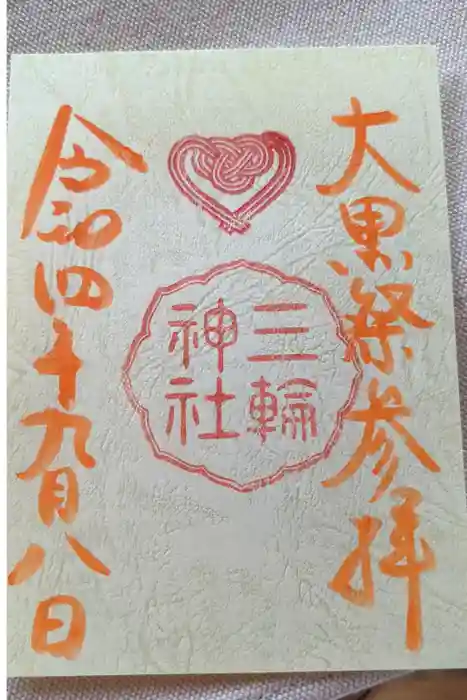 大黒祭参拝
三輪
神社
令和四年九月八日